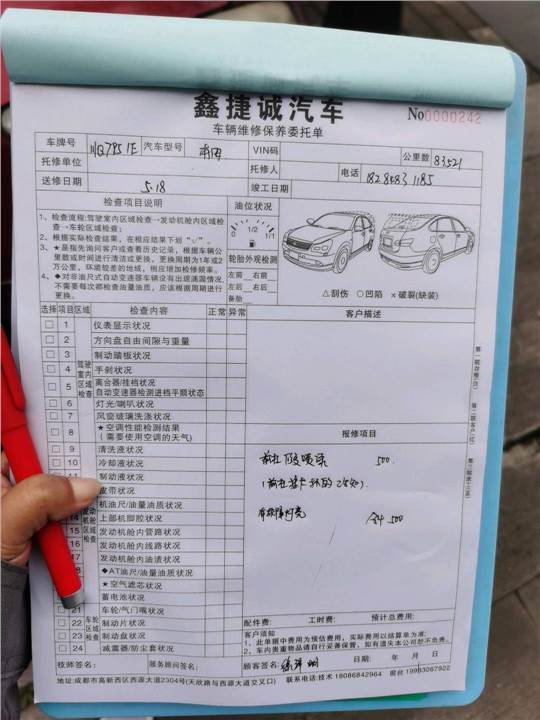 鑫捷诚汽车
车辆维修保养委托单
No0000242
车牌号 汽车型号 本田 VIN码 公里数 83521
托修单位 托修人 电话
送修日期 5.18 竣工日期
检查项目说明 油位状况
1、检查流程:驾驶室内区域检查→发动机舱内区域检查→车轮区域检查;
2、根据实际检查结果,在相应结果下划“√”。
3、★是指先询问客户或查看历史记录,根据车辆公里数或时间进行清洁或更换。更换周期为1年或2万公里,环境较差的地域,相应增加检修频率。
4、◆对非油尺式自动变速器车辆没有出现漏滴情况,不需要每次都检查油量油质,应该根据周期进行更换。
0 1/2 1/1
轮胎外观检测
左前 右前
左后 右后
备胎
△刮伤 ○凹陷 ×破裂(缺装)
选择 项目 区域 检查内容 正常 异常
客户描述
驾驶室内区域检查
1 仪表显示状况
2 方向盘自由间隙与重量
3 制动踏板状况
4 手刹状况
5 离合器/挂档状况
自动变速器检测进档平顺状态
6 灯光/喇叭状况
7 风窗玻璃洗涤状况
8 ★空调性能检测结果
(需要使用空调的天气)
报修项目
9 清洗液状况
10 冷却液状况
11 制动液状况
皮带状况
机油尺/油量油质状况
14 上部机脚胶状况
15 发动机舱内管路状况
16 发动机舱内线路状况
17 发动机舱内油渍状况
◆AT油尺/油量油质状况
★空气滤芯状况
蓄电池状况
21 车轮/气门嘴状况
22 制动片状况
23 制动盘状况
24 减震器/防尘套状况
车轮区域检查
500.
500
配件费: 工时费: 预计总费用:
客户须知:
1、此单据中费用为预估费用,实际费用以结算单为准;
2、车内贵重物品请自行妥善保管、如有遗失本公司恕不负责。
技师签名: 服务顾问签名: 顾客签名: 日期: 年 月 日
地址:成都市高新西区西源大道2304号(天欣路与西源大道交叉口) 联系电话:技术 18086842964